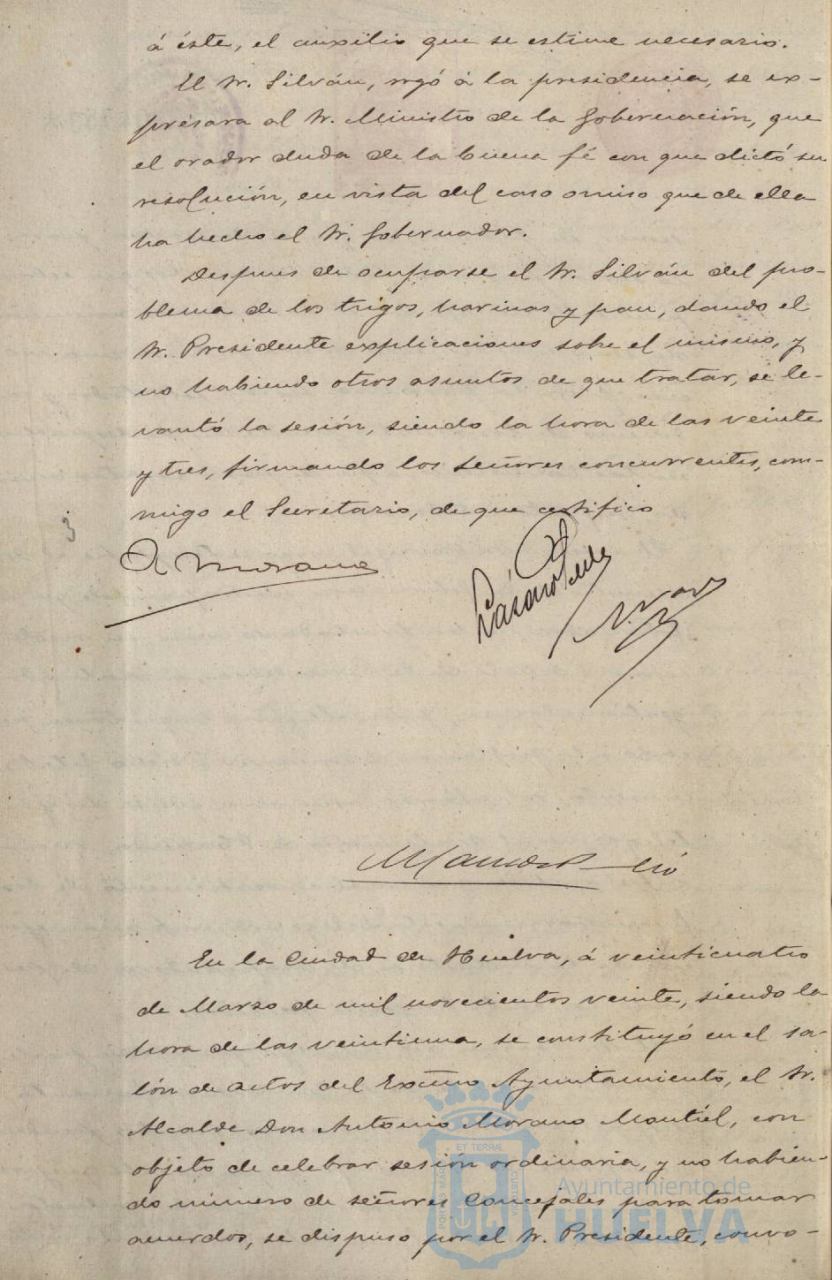 á éste, el auxilio que se estime necesario.
El Sr. Silván, rogó á la presidencia, se ex-
presara al Sr. Ministro de la Gobernación, que
el orador duda de la buena fé con que dictó su
resolución, en vista del caso omiso que de ella
ha hecho el Sr. Gobernador.
Despues de ocuparse el Sr. Silván del pro-
blema de los trigos, harinas y pan, dando el
Sr. Presidente explicaciones sobre el mismo, y
no habiendo otros asuntos de que tratar, se le-
vantó la sesión, siendo la hora de las veinte
y tres, firmando los señores concurrentes, con-
migo el Secretario, de que certifico
A Morano
Lázaro
En la Ciudad de Huelva, á veinticuatro
de Marzo de mil novecientos veinte, siendo la
hora de las veintiuna, se constituyó en el sa-
lón de actos del Excmo Ayuntamiento, el Sr.
Alcalde Don Antonio Morano Montiel, con
objeto de celebrar sesión ordinaria, y no habien-
do número de señores Concejales para tomar
acuerdos, se dispuso por el Sr. Presidente, convo-
ET TERRAE
Ayuntamiento de
HUELVA